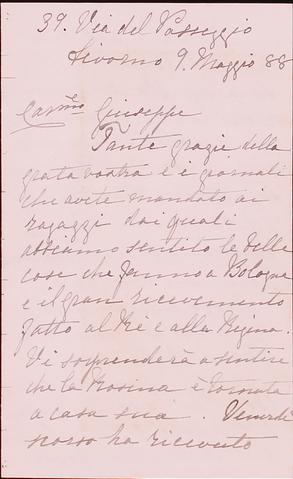 39. Via del Passeggio
Livorno 9. Maggio 88
Carmo Giuseppe
Tante grazie della
grata vostra e i giornali
che avete mandato ai
ragazzi dai quali
abbiamo sentito le belle
cose che fanno a Bologna
e il gran ricevimento
fatto al Rè e alla Regina.
Vi sorprenderà a sentire
che la Rosina è tornata
a casa sua. Venerdì
scorso ha ricevuto